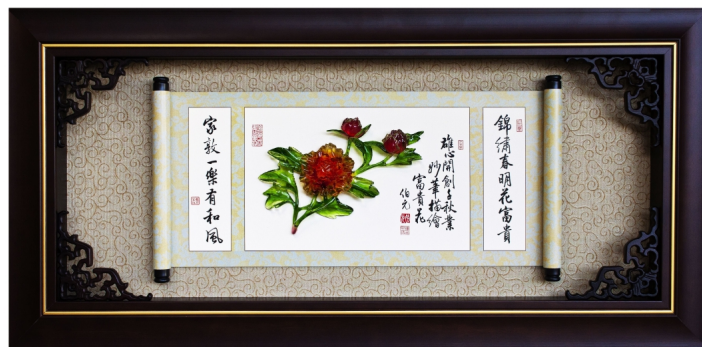 錦繡春明花富貴
雄心開創千秋業
妙筆描繪
富貴花
伯元
家敦一樂有和風